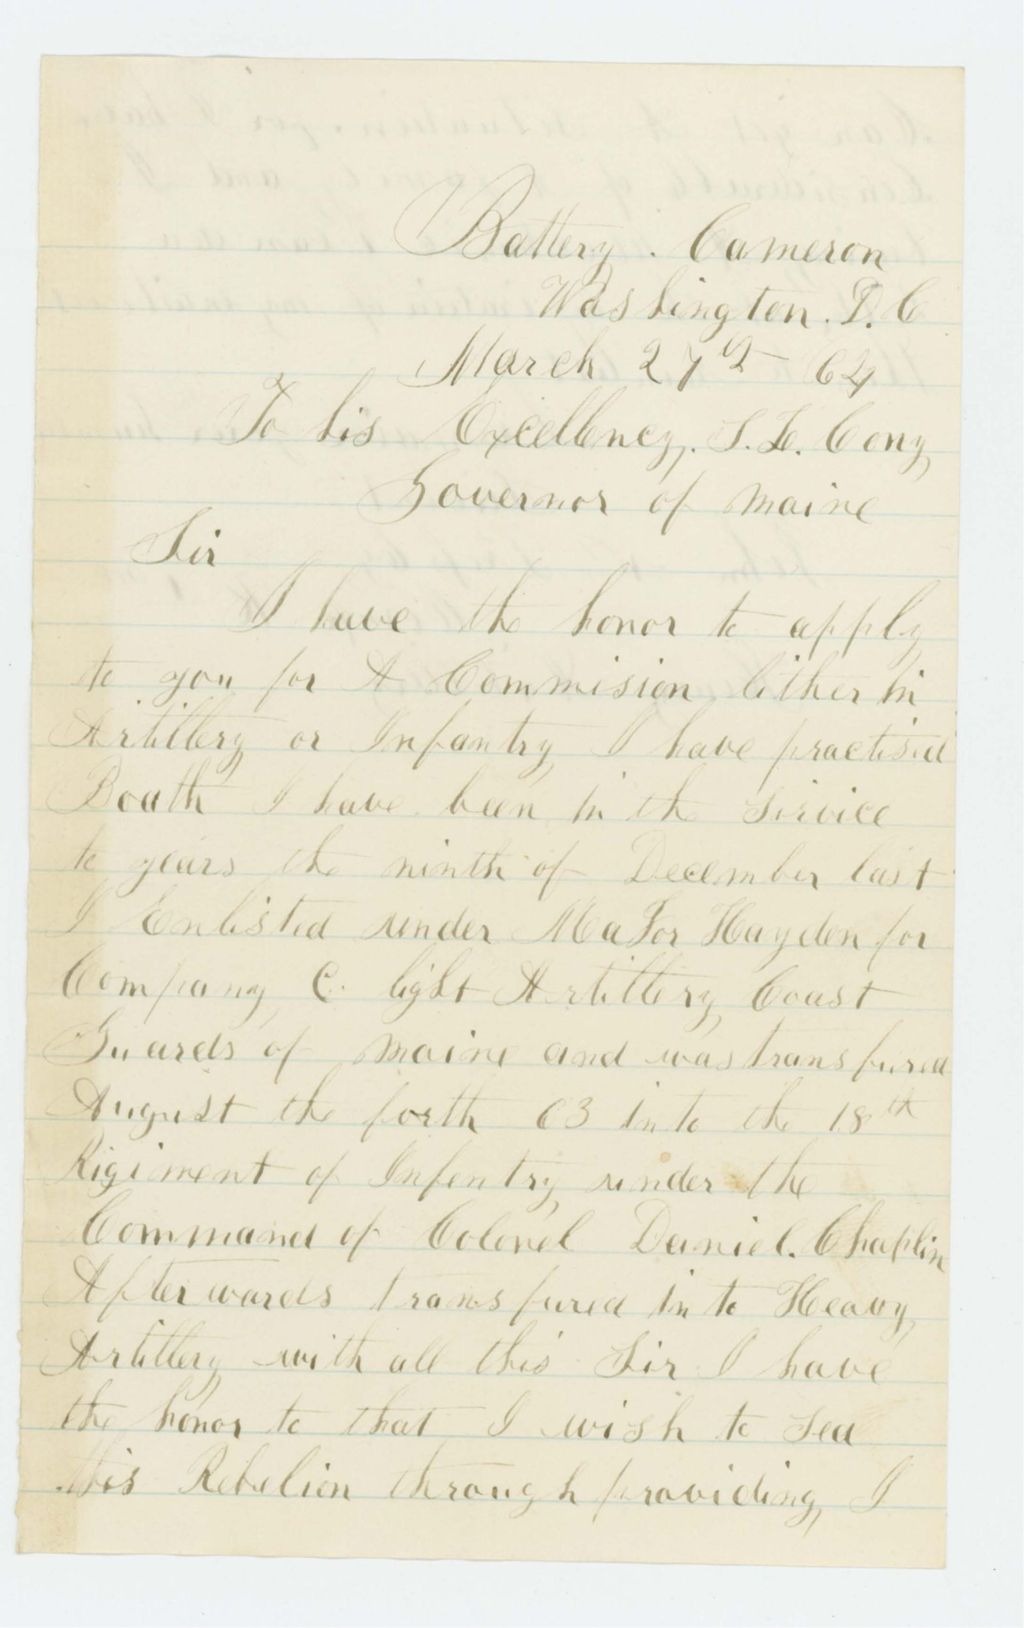 Battery. Cameron
Washington. D. C
March 27th 64
To his Excellency, S. L. Cony,
Governor of Maine
Sir
I have the honor to apply
to you for A Commision, either in
Artillery or Infantry I have practised
Boath I have been in the Service
to years the ninth of December last
I Enlisted under Major Hayden for
Company C. light Artillery Coast
Guards of Maine and was transfured
August the forth 63 in to the 18th
Rigiment of Infentry under the
Command of Colonel Daniel. Chaplin
Afterwards transfured in to Heavy
Artillery with all this Sir I have
the honor to that I wish to see
this Rebelion through providing I